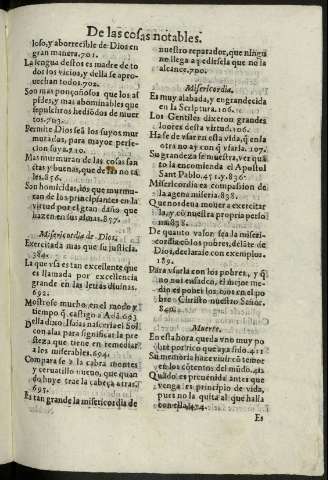 De las cosas notables.
loso, y aborrecible de Dios en
gran manera. 701.
La lengua destos es madre de to
dos los vicios, y della se apro-
uechan todos. 702.
Son mas ponçoñosos que los as
pides, y mas abominables que
sepulchros hediōdos de muer
tos. 703.
Permite Dios seā los suyos mur
murados, para mayor perfe-
cion suya. 210.
Mas murmuran de las cosas san
ctas y buenas, que de las no ta
les. 856.
Son homicidas, los que murmu-
ran de los principiantes en la
virtud por el gran daño que
hazen en sus almas. 857.
Misericordia de Dios.
Exercitada mas que su justicia.
384.
La que vsa es tan excellente que
es llamada por excelencia
grande en las letras diuinas.
692.
Mostrose mucho en el modo y
tiempo q̄ castigo a Adā. 693
Della dixo Isaias nasceria el Sol
con alas para significar la pre
steza que tiene en remediar
a los miserables. 694.
Comparase a la cabra montes
y ceruatillo nueuo, que quan
do huye trae la cabeça atras.
695.
Es tan grande la misericordia de
nuestro reparador, que ningu
no llega a pedirsela que no la
alcance. 790.
Misericordia.
Es muy alabada, y engrandecida
en la Scriptura. 106.
Los Gentiles dixeron grandes
loores desta virtud. 106.
Ha se de vsar en esta vida, q̄ en la
otra no ay con q̄ vsarla. 107.
Su grandeza se muestra, ver quā
to la encomienda el Apostol
Sant Pablo. 451. y. 836.
Misericordia es compasion de
la agena miseria. 838.
Que nos deua mouer a exercitar
la, y cō nuestra propria perso
na. 838.
De quanto valor sea la miseri-
cordia cō los pobres, delāte de
Dios, declarase con exemplos.
189.
Para vsarla con los pobres, y q̄
no nos enfaden, el mejor me-
dio es poner los ojos en el po
bre Christo nuestro Señor.
840.
Muerte.
En esta hora queda vno muy po
bre por rico que aya sido. 411
Su memoria haze viuir cō temor
en los cōtentos del mūdo. 412
Quādo es preuenida antes que
venga es principio de vida,
pues no la quita al que halla
con ella. 474.
Es